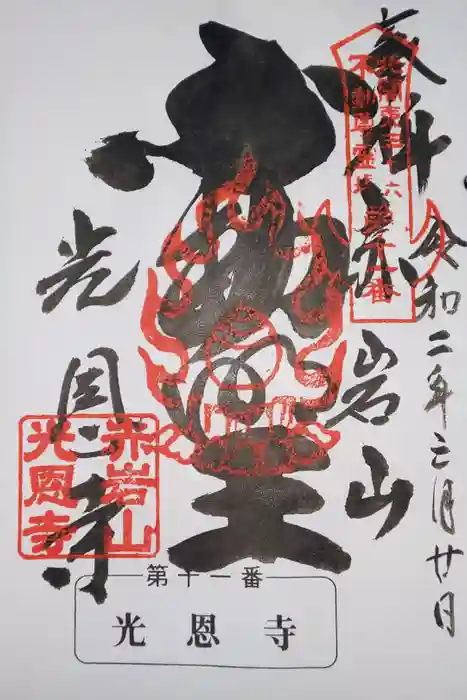 奉拝
令和二年三月廿日
北関東三十六
不動尊霊場
第十一番
赤岩山
光恩寺
赤岩山
光恩寺
第十一番
光恩寺